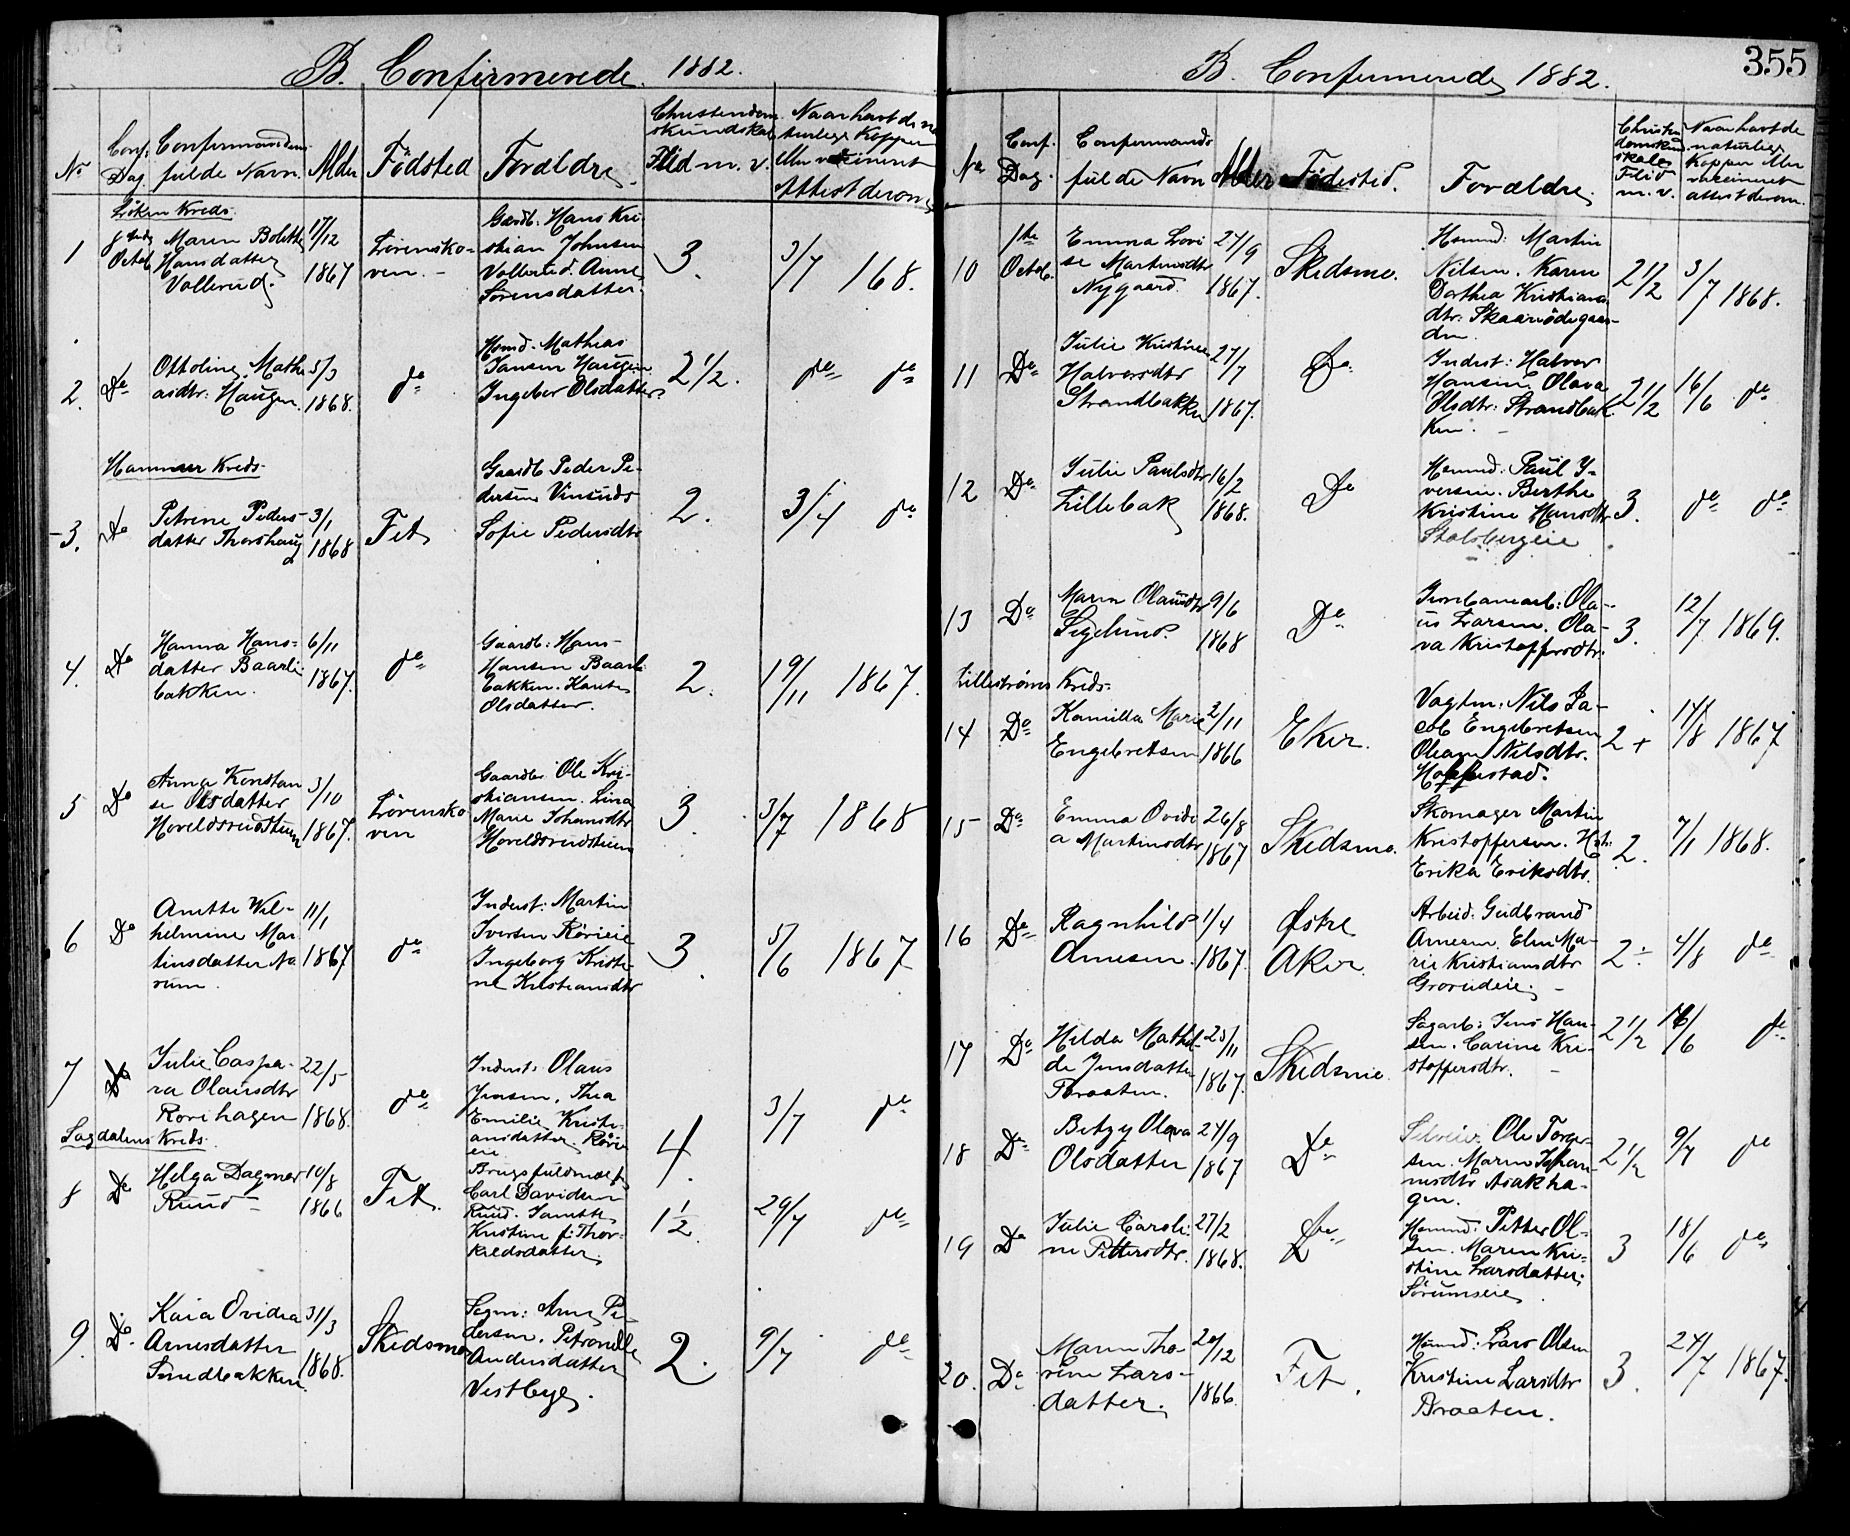 B. Confirmerede 1882.
No
Conf. Dag.
Confirmandens fulde Navn
Alder
Födsted
Forældre
Christendomskundskab Flid m. v.
Naar havt de naturlige Kopper eller vaccineret Attest derom
Löken Kreds.
1
1ste Octob
Maren Bolette Hansdatter Vollerud.
17/12 1867
Lörenskoven.
Gaardb. Hans Kristian Johnsen Vollerud. Anne Sörensdatter.
3.
3/7 168.
2.
Do
Ottoline Mathiasdtr: Haugen.
5/3 1868.
do
Hsmd. Mathias Jansen Haugen Ingebor Olsdatter
2 1/2.
do do
Hammer Kreds.
3.
Do
Petrene Pedersdatter Thorshaug
3/1 1868
Fet
Gaardb. Peder Pedersen Vinsnds Sofie Pedersdtr
2.
3/4 do
4.
Do
Hanna Hansdatter Baarlibakken.
6/11 1867.
do
Gaardb: Hans Hansen Baarlibakken. Olsdatter.
2.
19/11 1867.
5
Do
Anna Konstanse Olsdatter Hoveldsrudstuen
3/10 1867.
Lörenskoven
Gaardb. Ole Kristiansen. Lina Marie Johansdtr Hoveldsrudstuen
3.
3/7 1868
6
Do
Anette Wilhelmine Martinsdatter Norum.
11/1 1867
do
Inderst: Martin Iversen Rörieie Ingeborg Kristine Kristiansdtr
3.
5/6 1867
7
Do
Julie Caspara Olausdtr Rorihagen
22/5 1868.
do
Inderst: Olaus Jensen, Thea Emilie Kristiansdatter. Rörieie
4.
3/7 do
Sagdalens Kreds.
8
Do
Helga Dagmar Ruud
10/8 1866
Fet.
Brugsfuldmægt Carl Davidsen Ruud. Janette Kristine f: Thorkaldsdatter.
1 1/2.
29/7 do
9.
Do.
Kaia Ovidia Arnesdatter Smedbakken.
31/3 1868.
Skedsmo
Sagm: Arne Pedersen. Petronelle Andersdatter Vestbye.
2.
9/7 do
355
B. Confirmerede 1882.
No
Conf. Dag.
Confirmands fulde Navn
Alder
Födested.
Forældre
Christendomskundskab Flid m. v.
Naar havt de naturlige Kopper eller vaccineret attest derom.
10
1ste Octob.
Emma Lovise Martinsdtr Nygaard.
27/9 1867.
Skedsmo.
Hsmnd: Martin Nilsen. Karen Dorthea Kristiansdtr. Skaarisödegaarden.
2 1/2
3/7 1868.
11
Do
Julie Kristine Halvorsdtr Strandbakken
27/7 1867.
Do
Inderst: Halvor Hansen Olava Olsdtr: Strandbakken.
2 1/2
16/6 do
12
Do
Julie Paulsdtr Lillebak
16/2 1868.
Do
Hsmnd: Paul Iversen. Berthe Kristine Hansdtr Stalsbergeie
3.
do do
13
Do
Maren Olausdtr Segelund.
9/6 1868
Do
Jernbanearb: Olaus Larsen. Olava Kristoffersdtr.
3.
12/7 1869.
Lilleströms Kreds.
14
Do
Kamilla Marie Engebretsen
2/11 1866
Eker.
Vogtm: Nils Jacob Engebretsen Oleane Nilsdtr. Hoffustad.
2 +
14/8 1867
15
Do
Emma Ovidia Martinsdtr
26/8 1867
Skedsmo.
Skomager Martin Kristoffersen. Hst: Erika Eriksdtr.
2.
7/1 1868.
16
Do
Ragnhild Arnesen.
1/4 1867.
Østre Aker.
Arbeid. Gudbrand Arnesen. Elen Marie Kristiansdtr Grorudeie.
2 ÷
4/8 do
17
Do
Hilda Mathilde Jensdatter Braaten.
25/11 1867.
Skedsmo.
Sagarb: Jens Hansen. Carine Kristoffersdtr.
2 1/2
16/6 do
18
Do
Betzy Olava Olsdatter
27/9 1867
Do
Selveier Ole Torgersen. Maren Johannesdtr Asakhagen.
2 1/2
9/7 do
19
Do
Julie Caroline Pettersdtr.
27/2 1868.
Do
Hsmnd: Petter Olsen. Maren Kristine Larsdatter. Sörumseie
3
18/6 do
20.
Do
Maren Thorine Larsdatter.
20/12 1866.
Fet.
Hsmnd: Lars Olsen Kristine Larsdtr Braaten.
3.
27/7 1867.